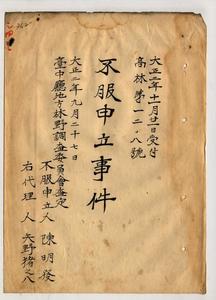 大正二年十一月廿一日受付
高林第一二、八號
不服申立事件
大正二年九月二十七日
臺中廳地方林野調査委員會査定
不服申立人 陳明發
右代理人 矢野猪之八